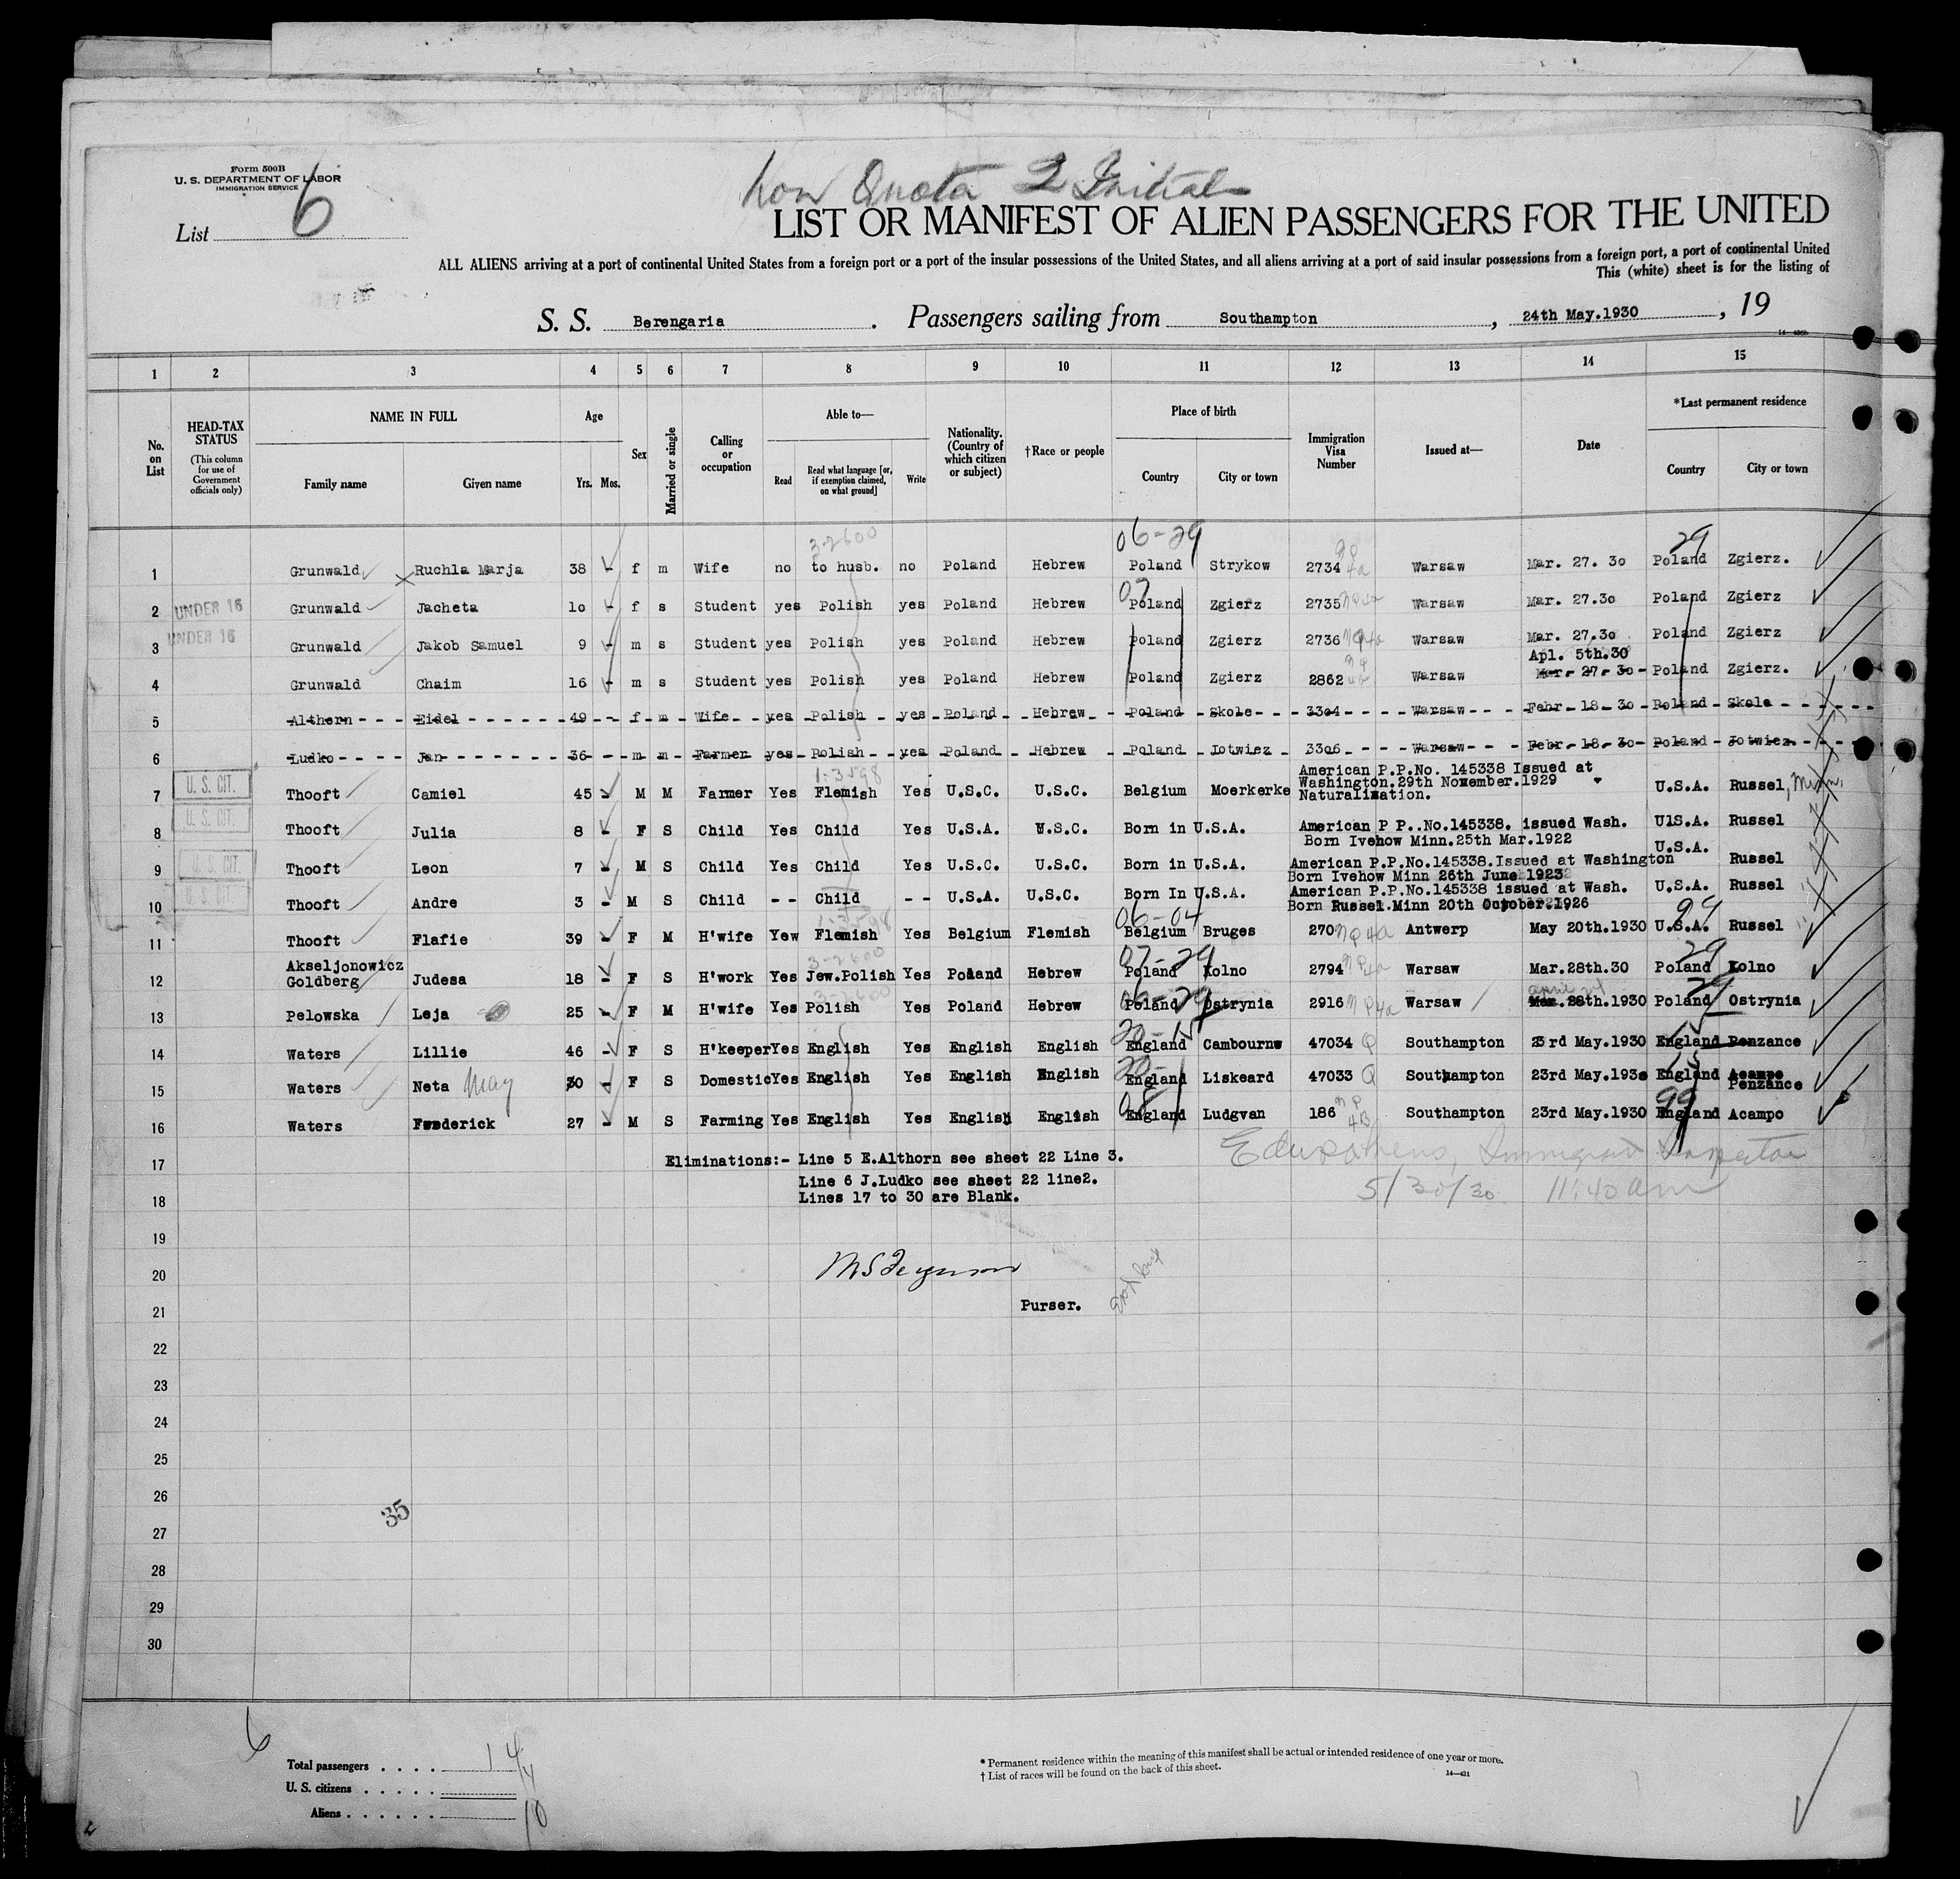 Form 500B
U. S. DEPARTMENT OF LABOR
IMMIGRATION SERVICE
List 6
Non Quota 2 Initial
LIST OR MANIFEST OF ALIEN PASSENGERS FOR THE UNITED
ALL ALIENS arriving at a port of continental United States from a foreign port or a port of the insular possessions of the United States, and all aliens arriving at a port of said insular possessions from a foreign port, a port of continental United
This (white) sheet is for the listing of
S. S. Berengaria . Passengers sailing from Southampton , 24th May.1930 , 19
1 2 3 4 5 6 7 8 9 10 11 12 13 14 15
No. on List
HEAD-TAX STATUS (This column for use of Government officials only)
NAME IN FULL
Family name Given name
Age
Yrs. Mos.
Sex
Married or single
Calling or occupation
Able to—
Read Read what language [or, if exemption claimed, on what ground] Write
Nationality. (Country of which citizen or subject)
†Race or people
Place of birth
Country City or town
Immigration Visa Number
Issued at—
Date
*Last permanent residence
Country City or town
3-2600 06-29 29
1 Grunwald Ruchla Marja 38 - f m Wife no to husb. no Poland Hebrew Poland Strykow 2734 Warsaw Mar. 27. 30 Poland Zgierz.
07
2 UNDER 16 Grunwald Jacheta 10 - f s Student yes Polish yes Poland Hebrew Poland Zgierz 2735 NP4a Warsaw Mar. 27.30 Poland Zgierz
3 UNDER 16 Grunwald Jakob Samuel 9 - m s Student yes Polish yes Poland Hebrew Poland Zgierz 2736 Warsaw Mar. 27.30 Poland Zgierz
Apl. 5th.30
4 Grunwald Chaim 16 - m s Student yes Polish yes Poland Hebrew Poland Zgierz 2862 Warsaw Mar. 27. 30 Poland Zgierz.
5 Althern Eidel 49 - f m Wife yes Polish yes Poland Hebrew Poland Skole 3304 Warsaw Febr. 18. 30 Poland Skole
6 Ludko Jan 36 m m Farmer yes Polish yes Poland Hebrew Poland Iotwiez 3306 Warsaw Febr. 18. 30 Poland Jotwiez
1-3598
American P.P.No. 145338 Issued at
7 U. S. CIT. Thooft Camiel 45 - M M Farmer Yes Flemish Yes U.S.C. U.S.C. Belgium Moerkerke Washington.29th November.1929 U.S.A. Russel, Minn.
Naturalization.
8 U. S. CIT. Thooft Julia 8 - F S Child Yes Child Yes U.S.A. U.S.C. Born in U.S.A. American P P..No.145338. issued Wash. UlS.A. Russel
Born Ivehow Minn.25th Mar.1922
9 U. S. CIT Thooft Leon 7 - M S Child Yes Child Yes U.S.C. U.S.C. Born in U.S.A. American P.P.No.145338.Issued at Washington U.S.A. Russel
Born Ivehow Minn 26th June 1923
10 U. S. CIT. Thooft Andre 3 - M S Child - - Child - - U.S.A. U.S.C. Born In U.S.A. American P.P.No.145338 issued at Wash. U.S.A. Russel
Born Russel.Minn 20th October.1926
1-3598 06-04 94
11 Thooft Flafie 39 - F M H'wife Yew Flemish Yes Belgium Flemish Belgium Bruges 270 NP4a Antwerp May 20th.1930 U.S.A. Russel
3-2600 07-29 29
12 Akseljonowicz Goldberg Judesa 18 - F S H'work Yes Jew.Polish Yes Poland Hebrew Poland Kolno 2794 NP4a Warsaw Mar.28th.30 Poland Kolno
3-2600 06-29 april 24 29
13 Pelowska Leja 25 - F M H'wife Yes Polish Yes Poland Hebrew Poland Ostrynia 2916 NP4a Warsaw Mar. 28th.1930 Poland Ostrynia
14 Waters Lillie 46 - F S H'keeper Yes English Yes English English England Cambourne 47034 Q Southampton 23rd May.1930 England Penzance
15 Waters Neta May 30 - F S Domestic Yes English Yes English English England Liskeard 47033 Q Southampton 23rd May.193o England Acampo Penzance
16 Waters Frederick 27 - M S Farming Yes English Yes English English England Ludgvan 186 NP 4B Southampton 23rd May.1930 England Acampo
99
17 Eliminations:- Line 5 E.Althorn see sheet 22 Line 3.
Immigrant Inspector
Line 6 J.Ludko see sheet 22 line2.
18 Lines 17 to 30 are Blank.
5/30/30 11:40 am
19
20
21 Purser.
22
23
24
25
26
35
27
28
29
30
6
Total passengers . . . . 14
U. S. citizens . . . . . 4
Aliens . . . . . . 10
* Permanent residence within the meaning of this manifest shall be actual or intended residence of one year or more.
† List of races will be found on the back of this sheet.
14—431